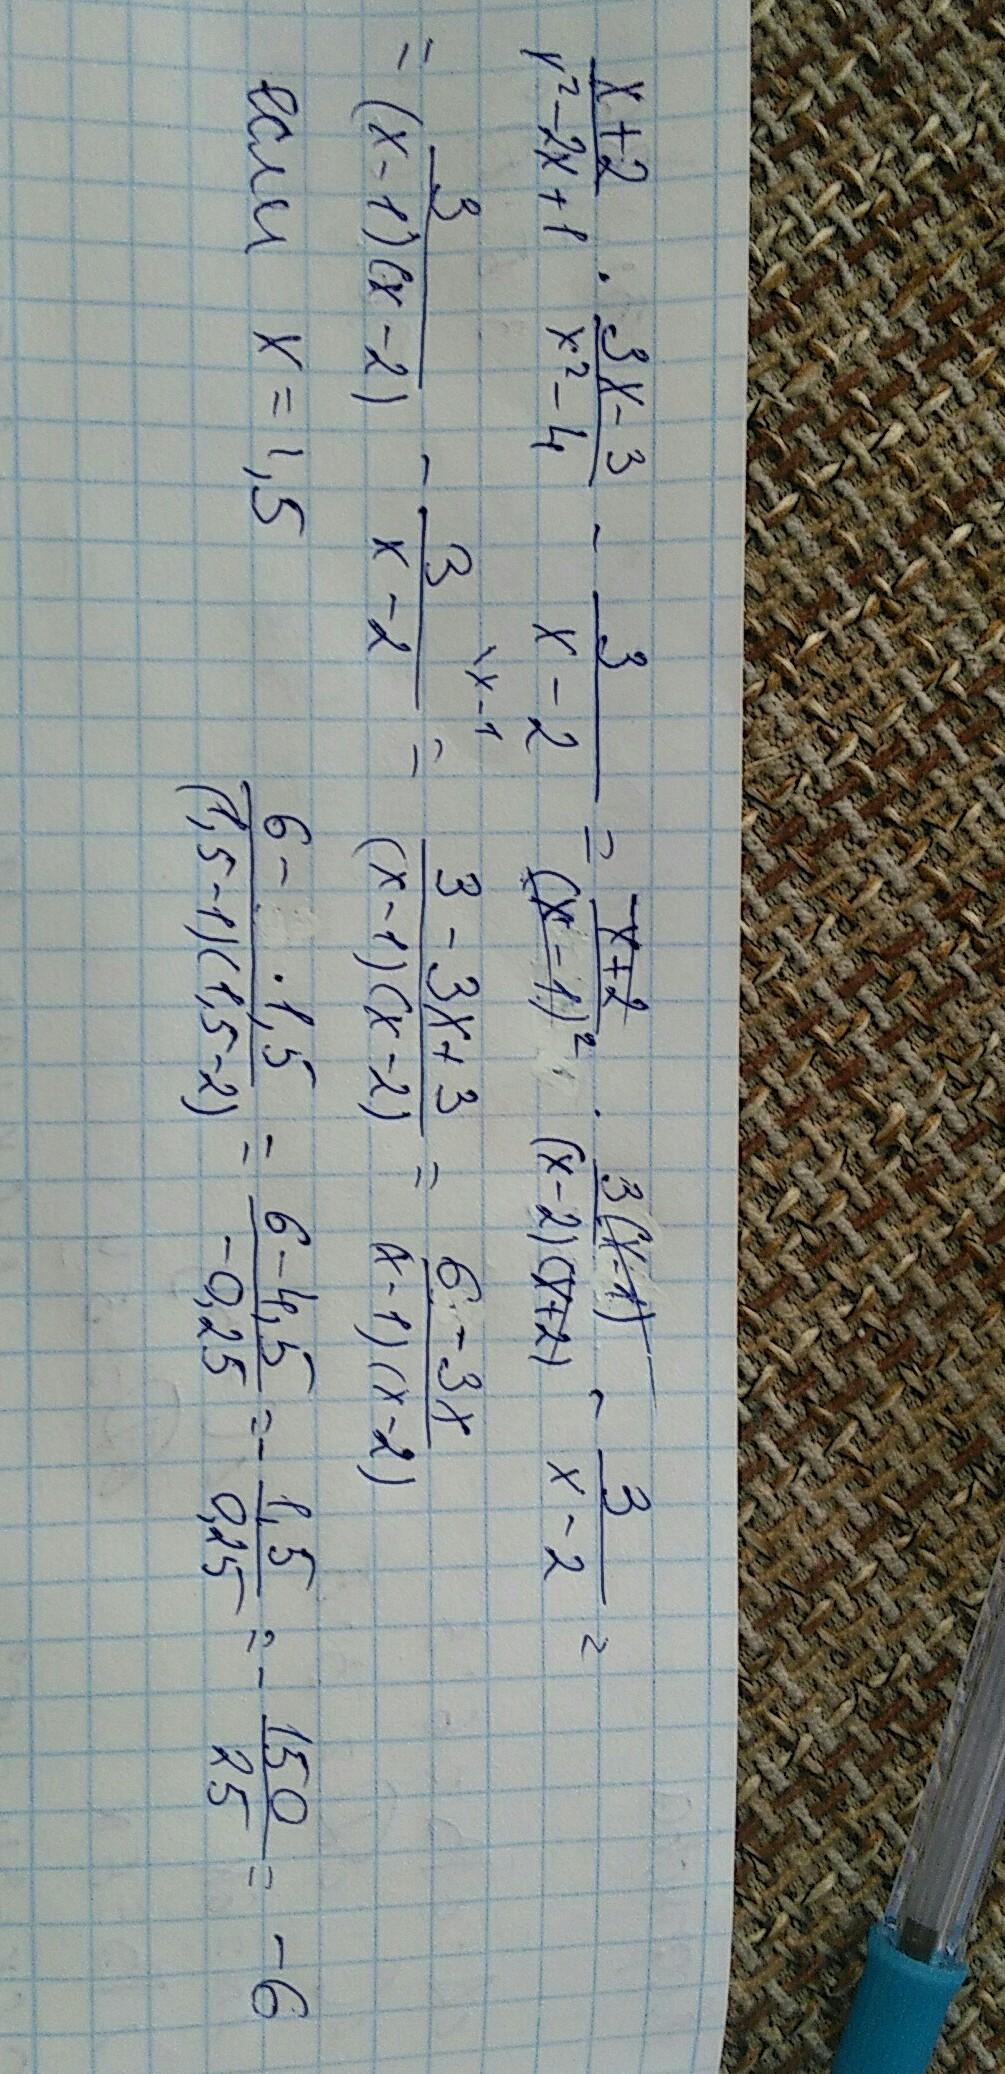 (x+2)/(x²-2x+1) · (3x-3)/(x²-4) - 3/(x-2) = (x+2)/(x-1)² · 3(x-1)/((x-2)(x+2)) - 3/(x-2) =
= 3/((x-1)(x-2)) - 3/(x-2) \x-1 = (3-3x+3)/((x-1)(x-2)) = (6-3x)/((x-1)(x-2))
если x=1,5 (6- ·1,5)/((1,5-1)(1,5-2)) = (6-4,5)/(-0,25) = - 1,5/0,25 = - 150/25 = -6